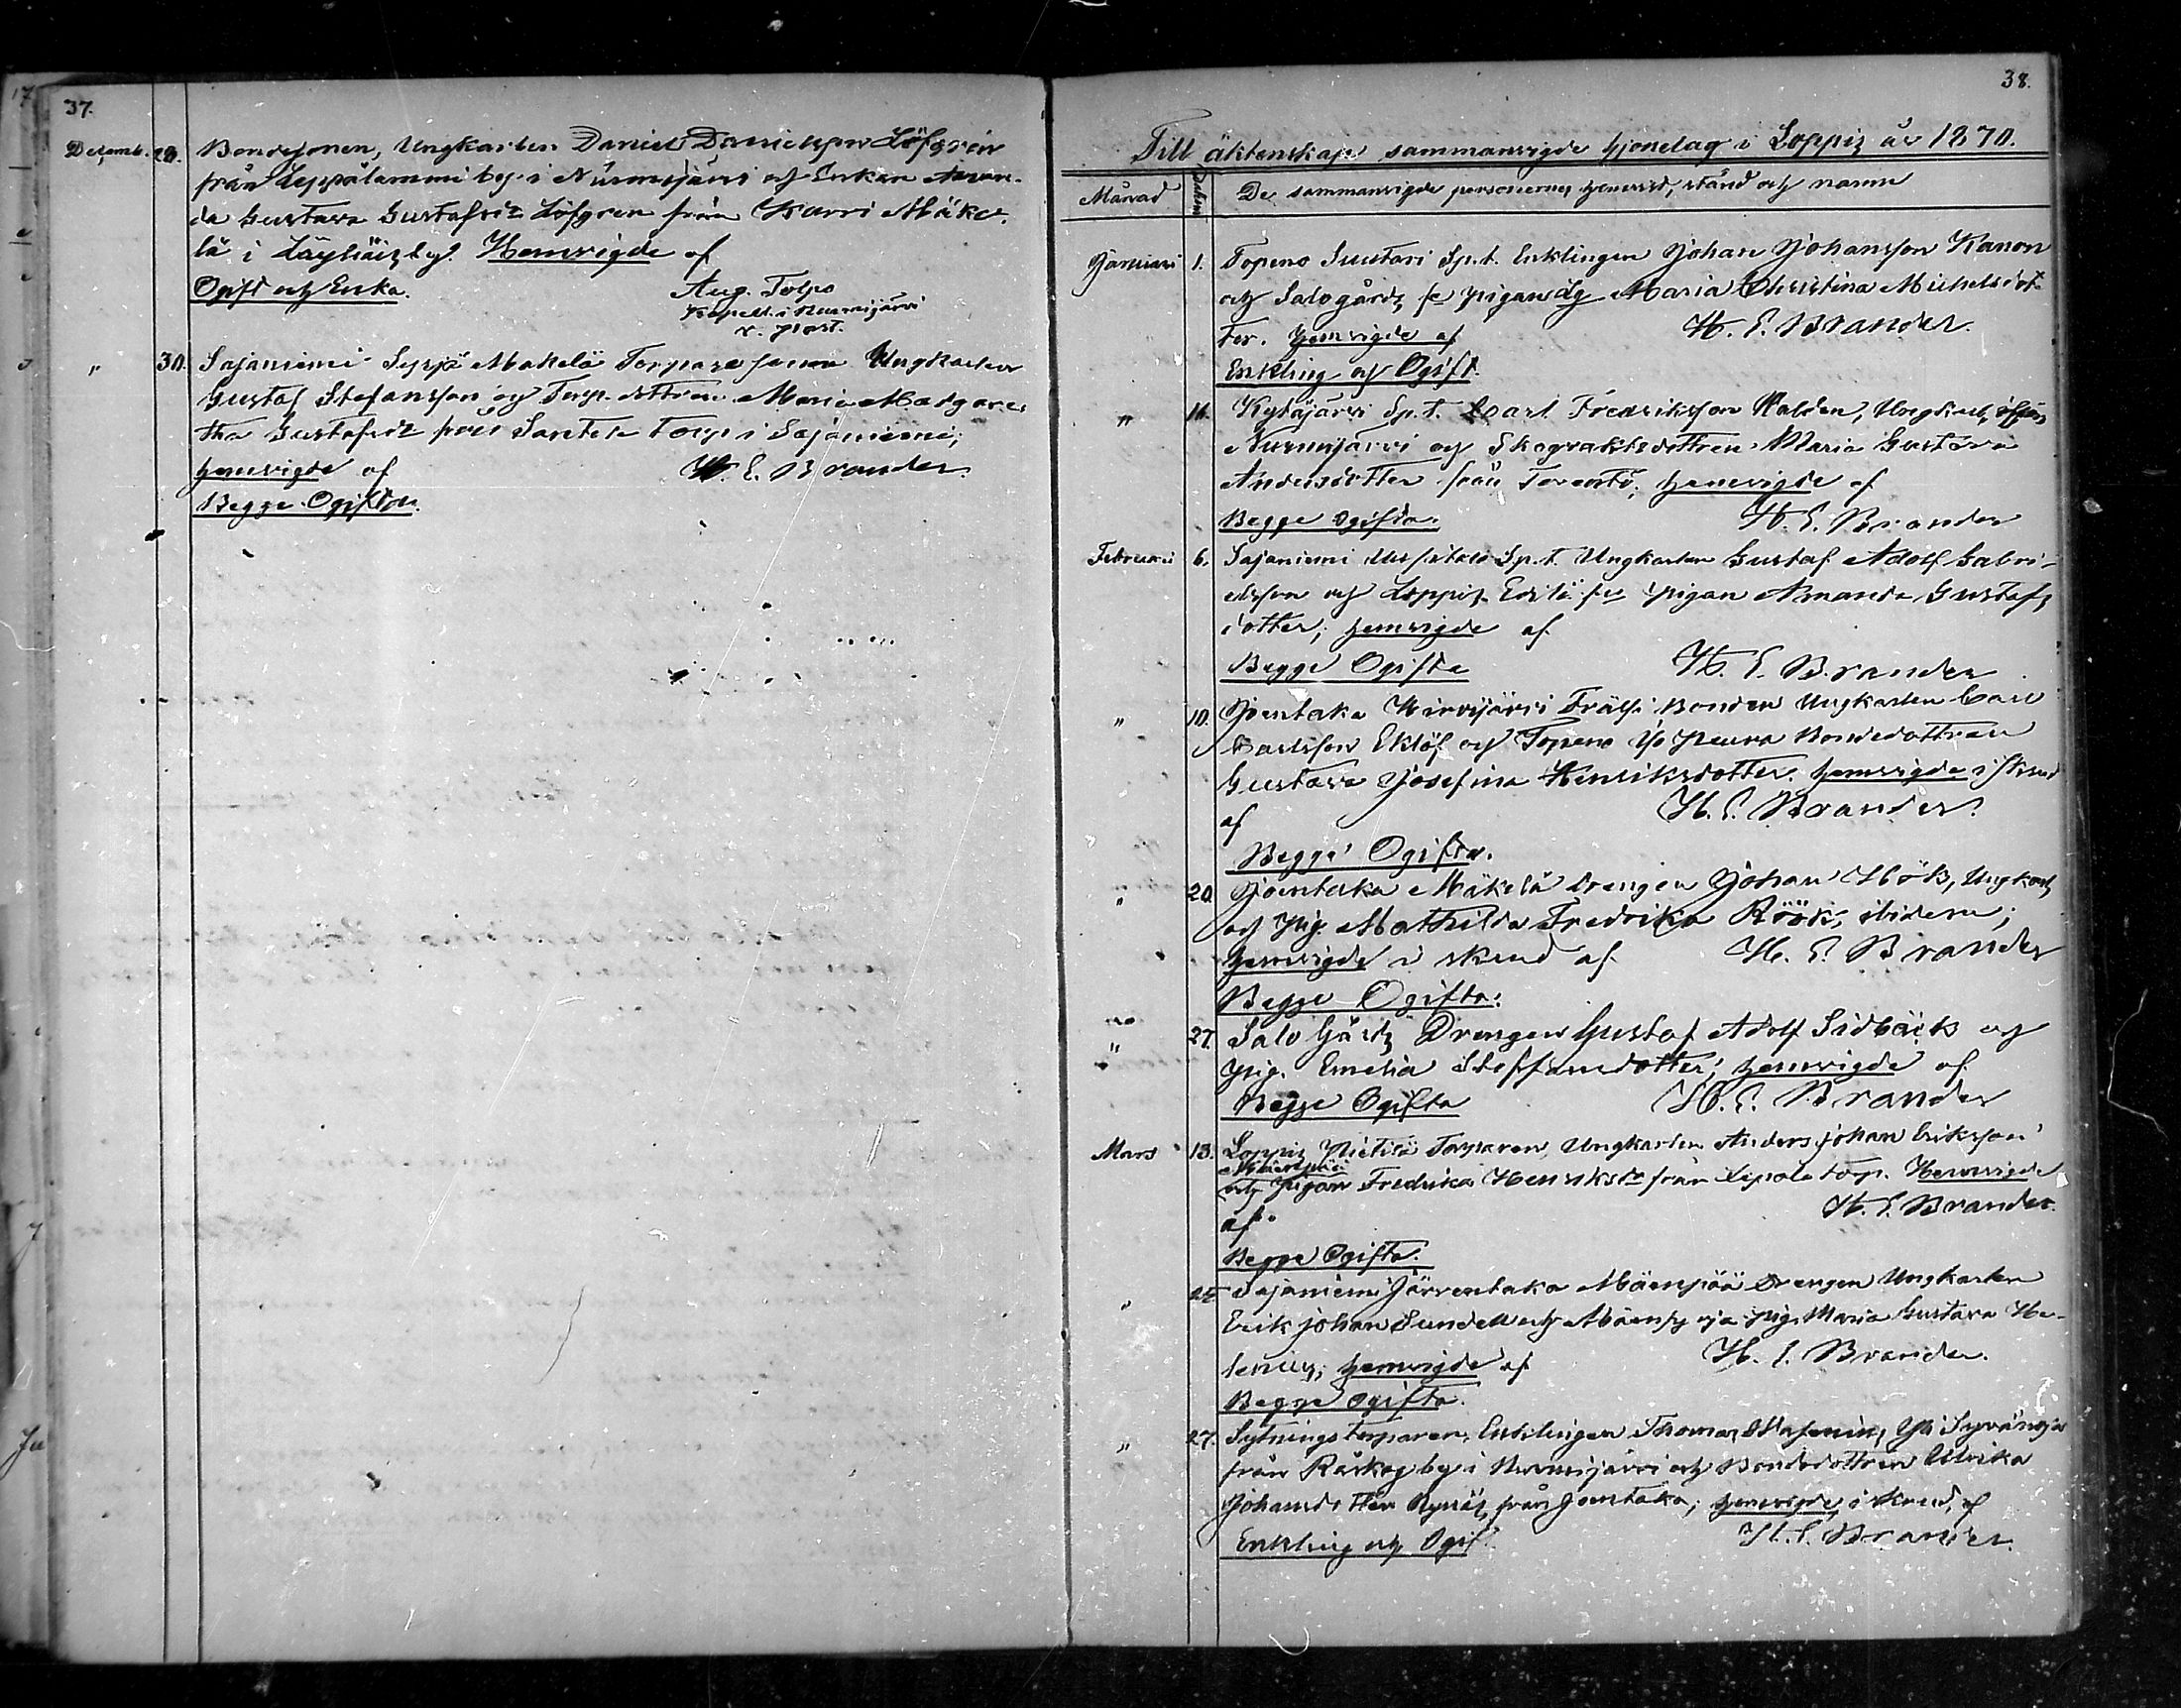 37.
Decemb. 29. Bondesonen, Ungkarlen Daniel Danielsson Löfgren
från Leppälammi by i Nurmijärvi och Enkan Aman-
da Gustava Gustafsdr Löfgren från Karri Mäke-
lä i Läyliäis by. Hemvigde af
Ogift och Enka. Aug. Tolpo
Kapell. i Nurmijärvi
v. past.
" 30. Sajaniemi Seppä Mäkelä Torpare sonen Ungkarlen
Gustaf Stefansson och Torp. dottren Maria Margare-
tha Gustafsdr från torp i Sajaniemi;
hemvigde af H. E. Brander.
Begge Ogifta.
38.
Till äktenskap sammanvigde hjonelag i Loppis år 1870.
Månad Datum De sammanvigde personernes hemvist, stånd och namn
Januari 1. Topeno Suutari Sp.t. Enklingen Johan Johansson Kanon
och Salo gårds piga Maria Christina Michelsdot-
ter. hemvigde af H. E. Brander.
Enkling och Ogift.
" 16. Kytäjärvi Sp.t. Carl Fredriksson Walden, Ungkarl, ifrån
Nurmijärvi och Skogvaktsdottren Maria Gustava
Andersdotter från Torento; hemvigde af
Begge ogifta. H. E. Brander
Februari 6. Sajaniemi Sp.t. Ungkarlen Gustaf Adolf Gabri-
elsson och Loppis Erilä pigan Amanda Gustafs
dotter; hemvigde af
Begge Ogifta H. E. Brander
" 10. Joentaka Hirvijärvi Frälse Bonden Ungkarlen Carl
Carlsson Eklöf och Topeno Yli Peura Bondedottren
Gustava Josefina Henriksdotter. hemvigde i skrud
af H. E. Brander.
Begge Ogifta.
" 20. Joentaka Mäkelä Drengen Johan Höök, Ungkarl,
och Pig. Mathilda Fredrika Röök, ibidem;
hemvigde i skrud af H. E. Brander
Begge Ogifta.
" 27. Salo Gårds Drengen Gustaf Adolf Sidbäck och
Pig. Emelia Steffansdotter; hemvigde af
Begge Ogifta H. E. Brander
Mars 13. Loppis Pietilä Torparen Ungkarlen Anders Johan Eriksson
och Pigan Fredrika Henriksdr från Lepola torp. Hemvigde
af H. E. Brander.
Begge Ogifta.
" 25 Sajaniemi Järventaka Mäenpää Drengen Ungkarlen
Erik Johan Sundell och pig. Maria Gustava He-
lenius; hemvigde af H. E. Brander.
Begge Ogifta.
" 27. Sytnings torparen, Enklingen Thomas
från Råskog by i Nurmijärvi och Bondedottren Ulrika
Johansdotter från Joentaka; hemvigde i skrud, af
Enkling och Ogift. H. E. Brander.